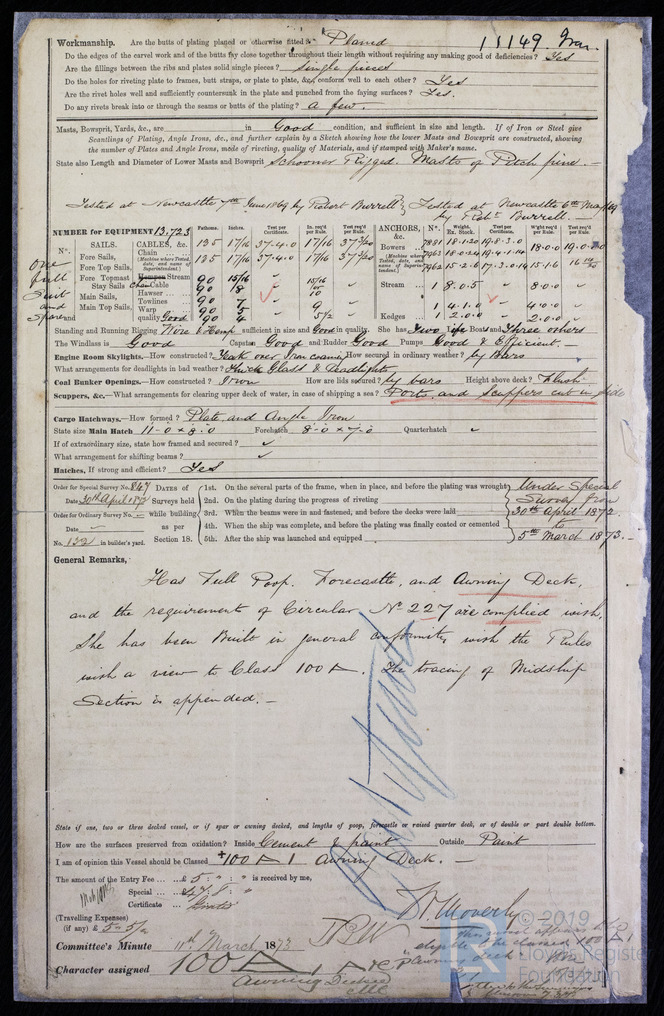 11149 Iron
Workmanship. Are the butts of plating planed or otherwise fitted? Planed
Do the edges of the carvel work and of the butts fay close together throughout their length without requiring any making good of deficiencies? Yes
Are the fillings between the ribs and plates solid single pieces? single pieces
Do the holes for riveting plate to frames, butt straps, or plate to plate, &c., conform well to each other? Yes
Are the rivet holes well and sufficiently countersunk in the plate and punched from the faying surfaces? Yes.
Do any rivets break into or through the seams or butts of the plating? a few.
Masts, Bowsprit, Yards, &c., are in Good condition, and sufficient in size and length. If of Iron or Steel give
Scantlings of Plating, Angle Irons, &c., and further explain by a Sketch showing how the Lower Masts and Bowsprit are constructed, showing
the number of Plates and Angles, mode of riveting, quality of Materials, and if stamped with Maker's name.
State also Length and Diameter of Lower Masts and Bowsprit Schooner Rigged. Masts of Pitch pine. —
Tested at Newcastle 7th June 1869 by Robert Burrell } Tested at Newcastle 6th May
by Robt Burrell. —
NUMBER for EQUIPMENT 13,723
Nº. SAILS. CABLES, &c. Fathoms. Inches. Test per Certificate. In. req'd per Rule. Test req'd per Rule. ANCHORS, &c. Nº. Weight. Ex. Stock. Test per Certificate. W'ght req'd per Rule. Test req'd per Rule.
Fore Sails, Chain 135 1 7/16 37-4-0 1 7/16 37 3/20 Bowers 7831 18-1-20 19-8-3-0 18-0-0 19-0-0
Fore Top Sails, 135 1 7/16 37-4-0 1 7/16 37 3/20
(Machine where Tested, date, and name of Superintendent)
Fore Topmast Stream 90 15/16 15/16 7962 15-2-8 17-3-0-14 15-1-6
Stay Sails Chain Cable 90 8 Stream 1 8.0.5 8.0.0
Main Sails, Hawser 10
Main Top Sails, Towlines 90 7 9 1 4.1.0 4.0.0
Warp 90 5 5 1/2 Kedges 1 2.0.0 2.0.0
quality Good 90 4
one full Suit and Spare
Standing and Running Rigging Wire & Hemp sufficient in size and Good in quality. She has Two Life Boats and Three others
The Windlass is Good Capstan Good and Rudder Good Pumps Good & Efficient. —
Engine Room Skylights.—How constructed? Teak over Iron coaming How secured in ordinary weather? by bars
What arrangements for deadlights in bad weather? Thick Glass & Deadlights
Coal Bunker Openings.—How constructed? Iron How are lids secured? by bars Height above deck? Flush
Scuppers, &c.—What arrangements for clearing upper deck of water, in case of shipping a sea? Ports and Scuppers cut in side
Cargo Hatchways.—How formed? Plate and Angle Iron
State size Main Hatch 11-0 x 8.0 Forehatch 8-0 x 7-0 Quarterhatch ✓
If of extraordinary size, state how framed and secured? ✓
What arrangement for shifting beams? ✓
Hatches, If strong and efficient? Yes
Order for Special Survey No. 847
Date 30th April 1872
Order for Ordinary Survey No. —
Date —
No. 132 in builder's yard.
DATES of Surveys held while building as per Section 18.
1st. On the several parts of the frame, when in place, and before the plating was wrought
2nd. On the plating during the progress of riveting
3rd. When the beams were in and fastened, and before the decks were laid
4th. When the ship was complete, and before the plating was finally coated or cemented
5th. After the ship was launched and equipped
Under Special
Survey from
30th April 1872
to
5th March 1873. —
General Remarks,
Has Full Poop. Forecastle, and Awning Deck,
and the requirement of Circular Nº 227 are complied with,
She has been Built in general conformity with the Rules
with a view to Class 100 A. The tracing of Midship
Section is appended. —
State if one, two or three decked vessel, or if spar or awning decked, and lengths of poop, forecastle or raised quarter deck, or of double or part double bottom.
How are the surfaces preserved from oxidation? Inside Cement & paint Outside Paint
I am of opinion this Vessel should be Classed +100 A 1 Awning Deck. —
The amount of the Entry Fee ... £ 5 " : " is received by me,
Special ... £
Certificate ... Gratis
(Travelling Expenses)
(if any) £ 5-5/2
Committee's Minute 11th March 1873
Character assigned 100 A 1
Awning Decked
© 2019
Lloyd's Register
Foundation